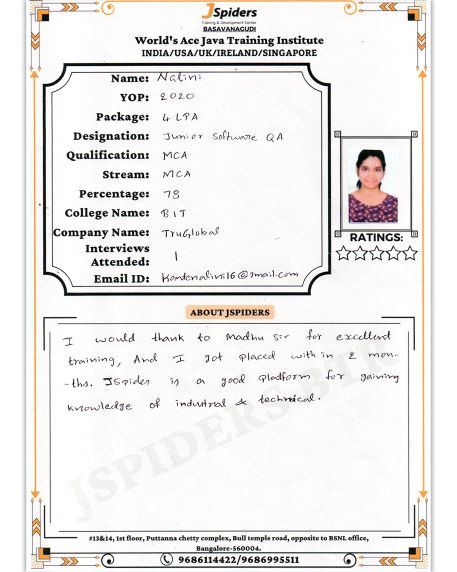 JSpiders
Training & Development Center
BASAVANAGUDI
World's Ace Java Training Institute
INDIA/USA/UK/IRELAND/SINGAPORE
Name: Nalini
YOP: 2020
Package: 4 LPA
Designation: Junior Software QA
Qualification: MCA
Stream: MCA
Percentage: 78
College Name: BIT
Company Name: TruGlobal
Interviews
Attended: 1
Email ID: @gmail.com
RATINGS:
ABOUT JSPIDERS
I would thank to Madhu Sir for excellent
training, And I got placed with in 2 mon-
-ths. JSpider is a good platform for gaining
knowledge of industrial & technical.
JSPIDERS BTR
#13&14, 1st floor, Puttanna chetty complex, Bull temple road, opposite to BSNL office,
Bangalore-560004.
9686114422/9686995511